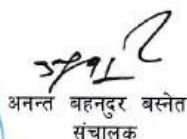 अनन्त बहनदुर बस्नेत
संचालक